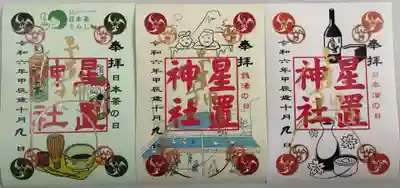 日本茶
奉拝
日本茶の日
星置
神社
令和六年甲辰歳十月九日
奉拝
銭湯の日
星置
神社
令和六年甲辰歳十月九日
奉拝
日本酒の日
星置
神社
令和六年甲辰歳十月九日